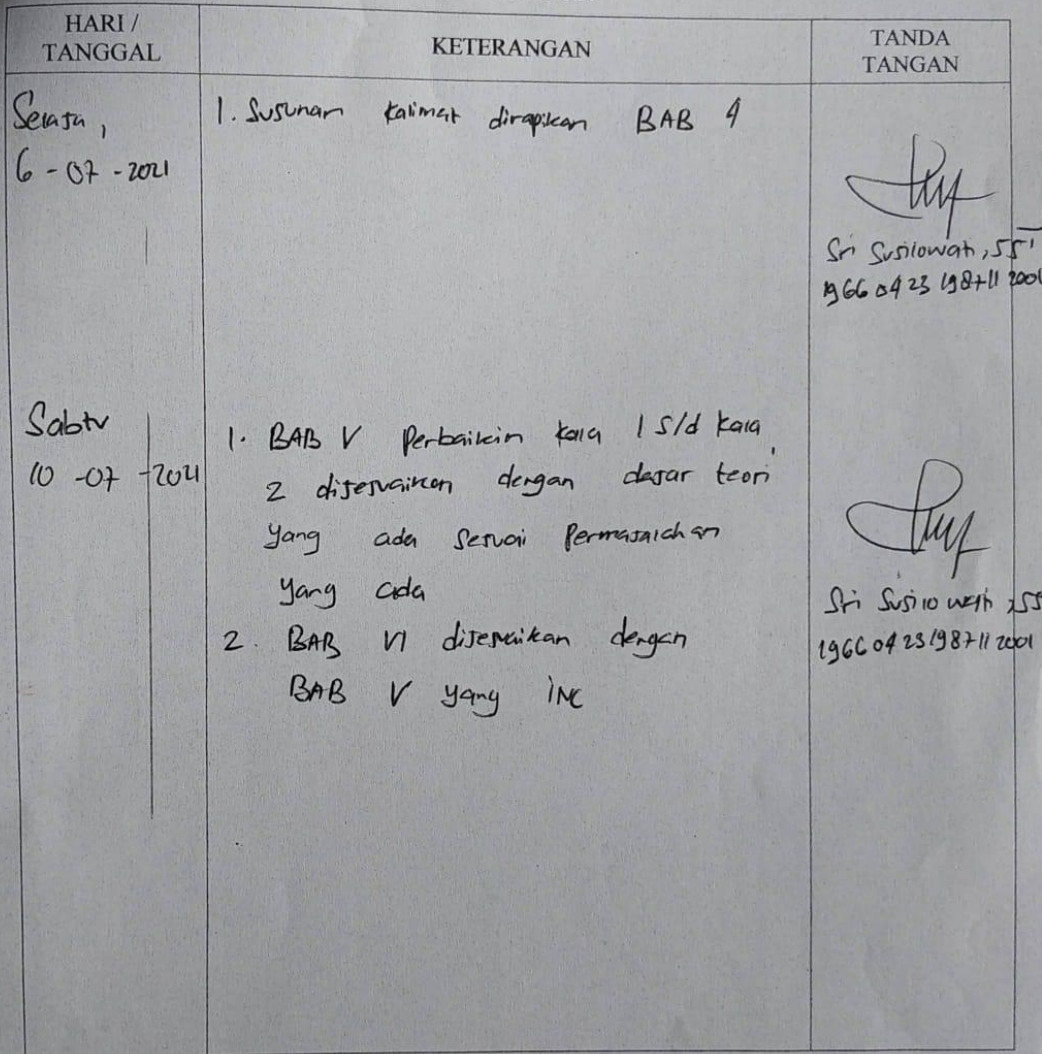 HARI /
TANGGAL
KETERANGAN
TANDA
TANGAN
Selasa,
6 - 07 - 2021
1. Susunan kalimat dirapikan BAB 4
Sri Susilowati, SST
19660423 198711 2001
Sabtu
10 - 07 - 2021
1. BAB V Perbaikin kala 1 s/d kala
2 disesuaikan dengan dasar teori
yang ada sesuai Permasalahan
yang ada
2. BAB VI disesuaikan dengan
BAB V yang INC
Sri Susilowati, SS
19660423 198711 2001